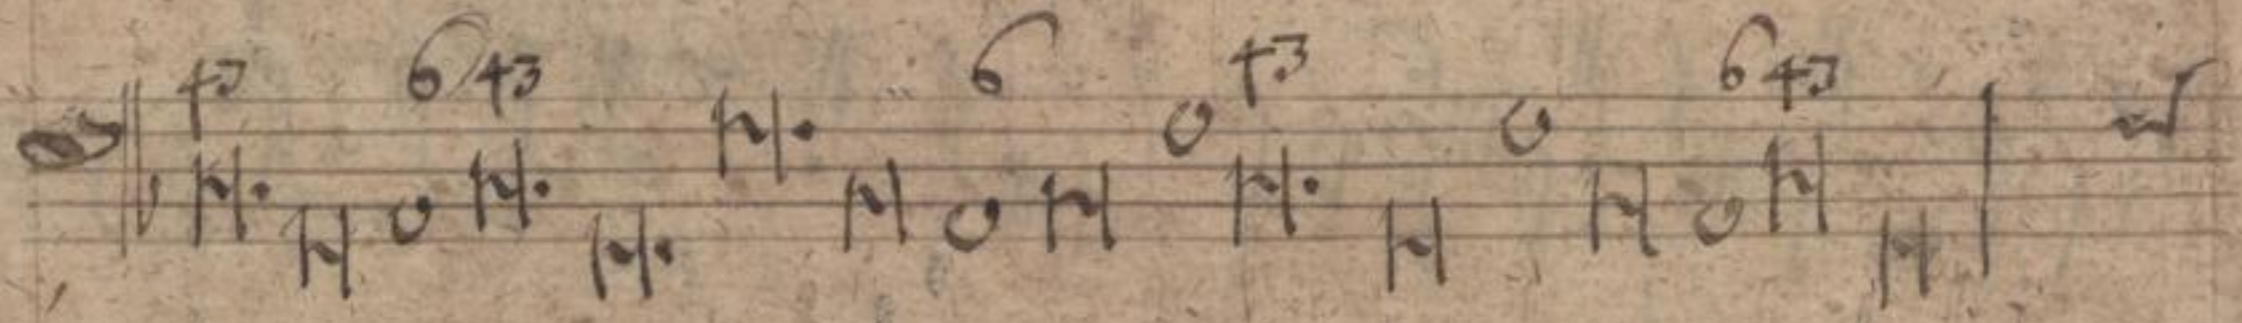 43 6 43 6 43 6 43